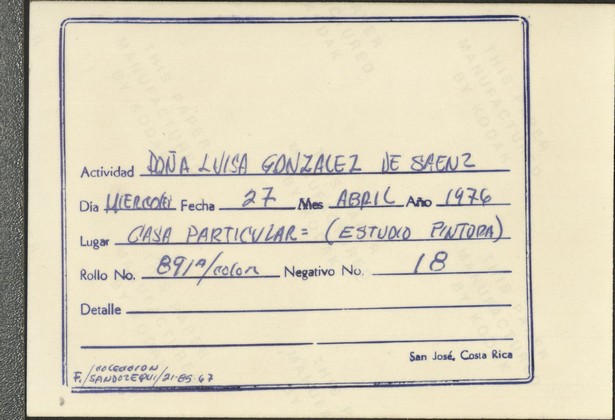 Actividad DOÑA LUISA GONZALEZ DE SAENZ
Día MIERCOLES Fecha 27 Mes ABRIL Año 1976
Lugar CASA PARTICULAR= (ESTUDIO PINTORA)
Rollo No. 891A/color Negativo No. 18
Detalle
San José, Costa Rica
F./COLECCION
SANDOZEQUI/21-85-67
THIS PAPER
MANUFACTURED
BY KODAK